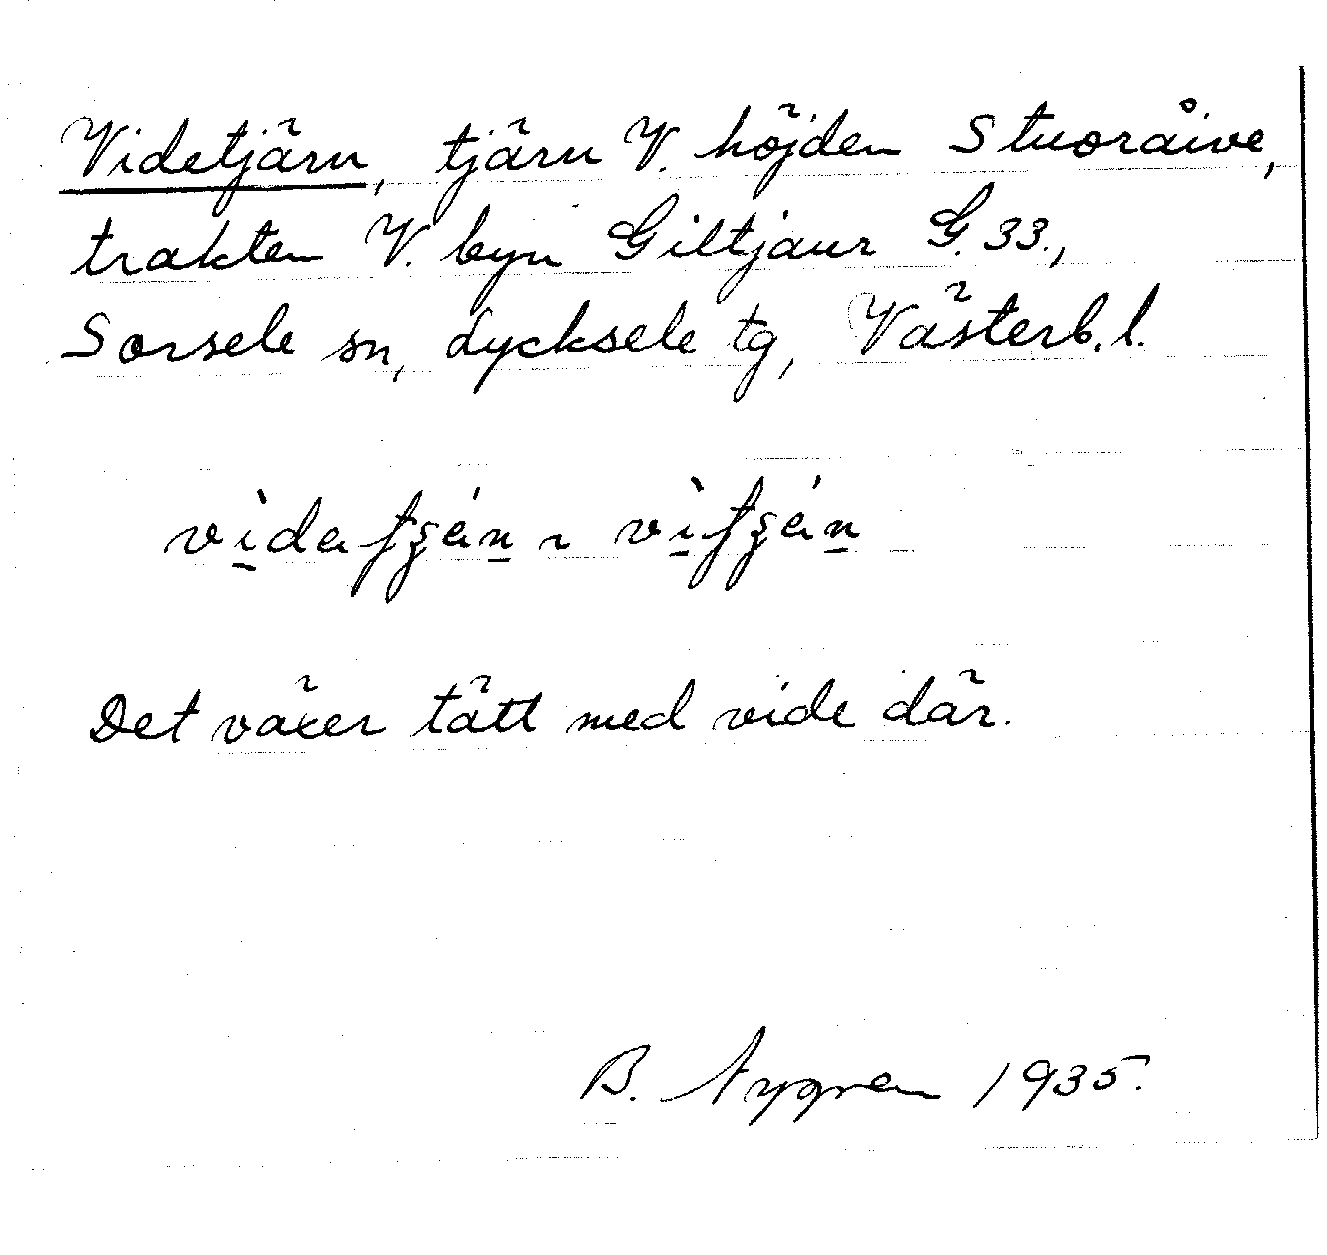 Videtjärn, tjärn V. höjden Stuoråive,
trakten V. byn Giltjaur G. 33.,
Sorsele sn, Lycksele tg, Västerb. l.
Det växer tätt med vide där.
B. Nygren 1935.